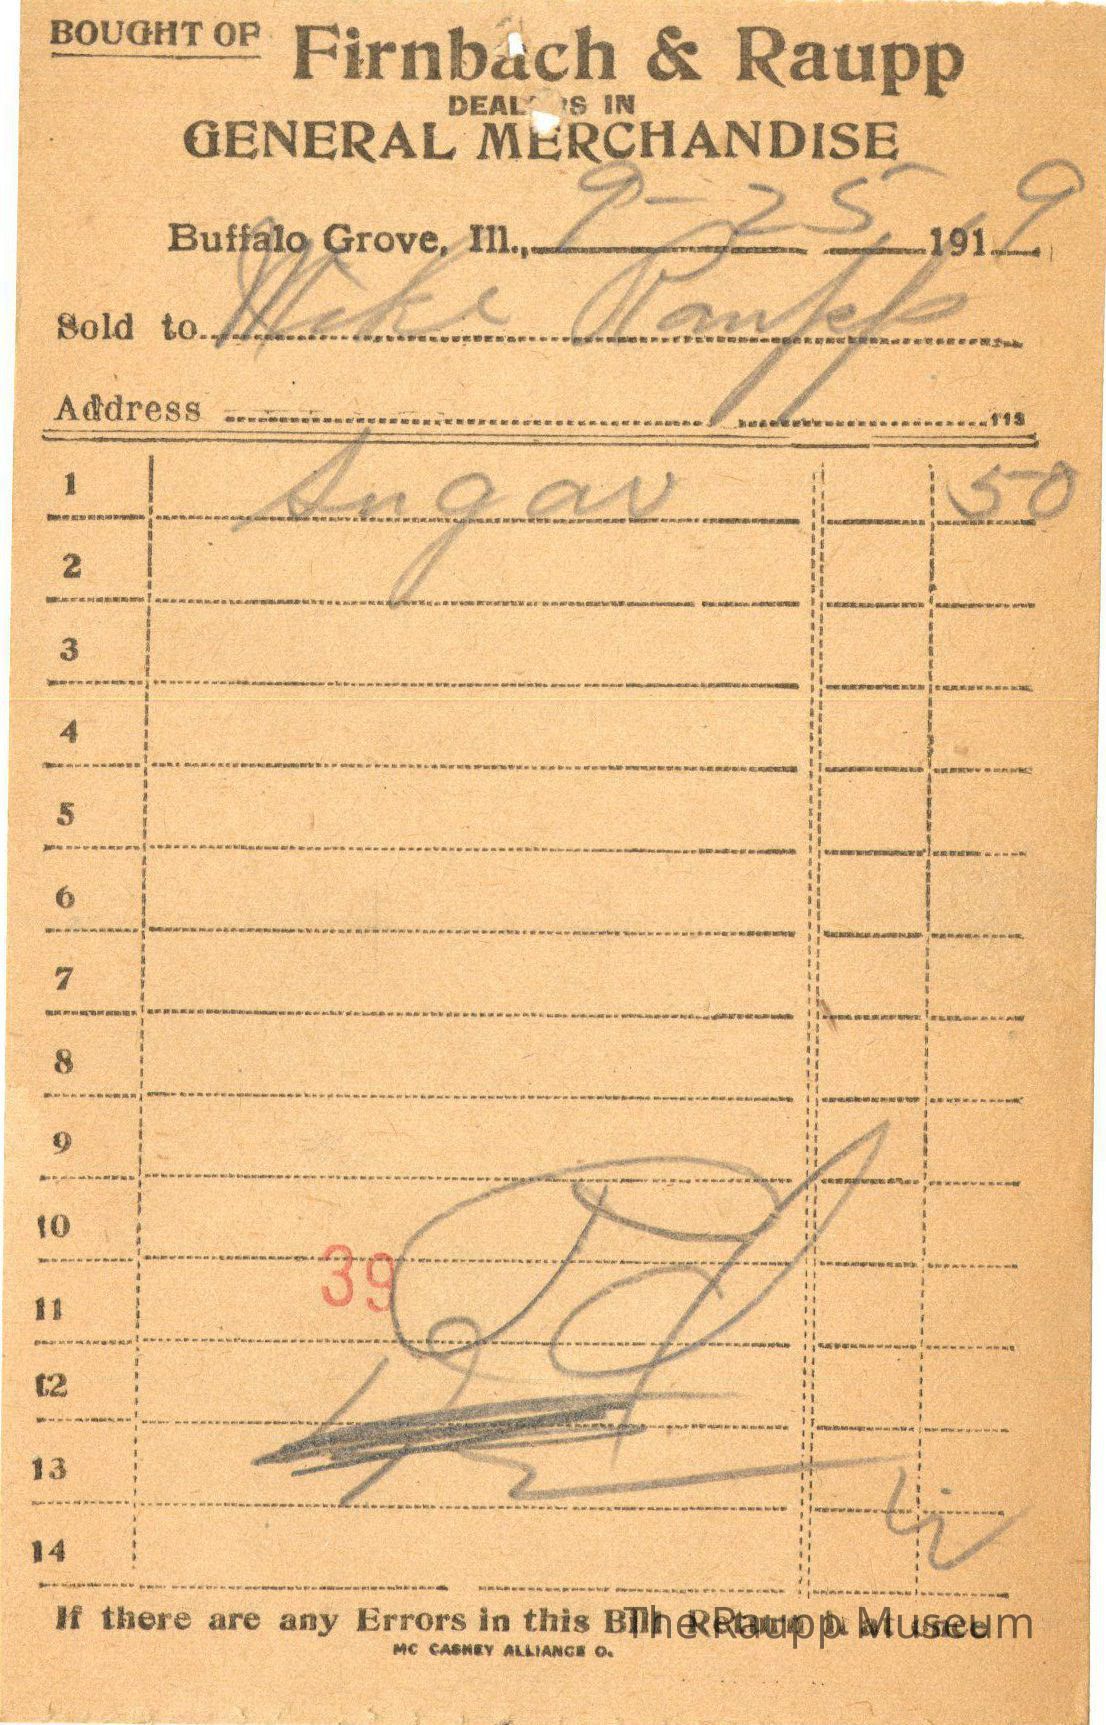 BOUGHT OF Firnbach & Raupp
DEALERS IN
GENERAL MERCHANDISE
Buffalo Grove, Ill., 9-25 1919
Sold to Mike Raupp
Address 113
1 Sugar 50
2
3
4
5
6
7
8
9
10
39
11
12
13
14
If there are any Errors in this Bill Return it at once
The Raupp Museum
MC CASKEY ALLIANCE O.